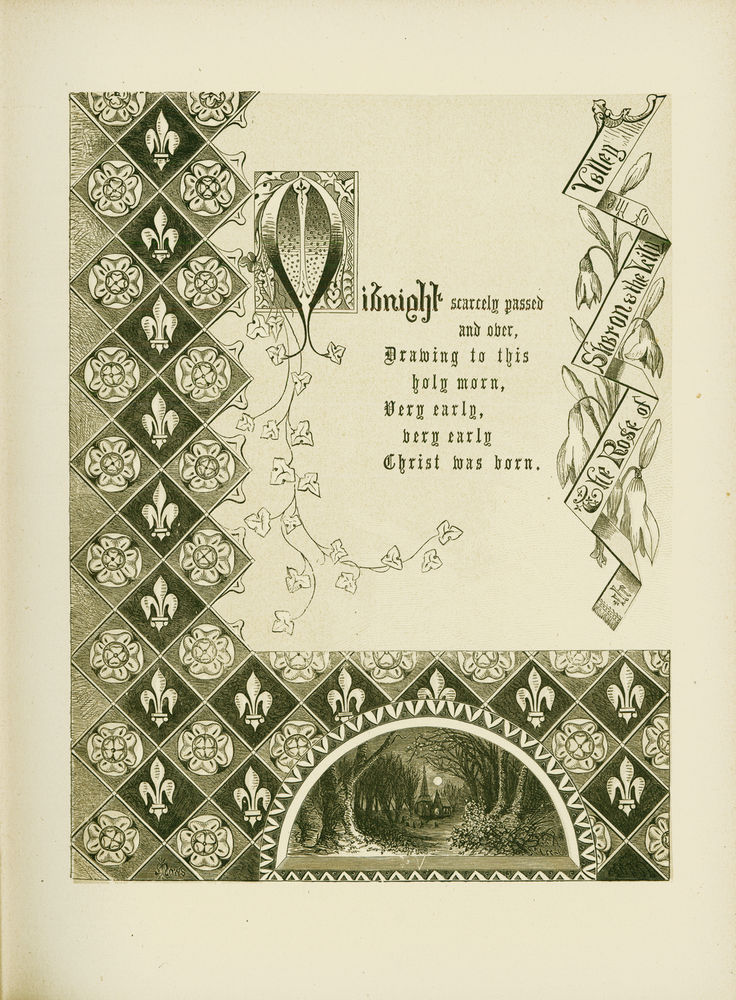 Midnight scarcely passed
and over,
Drawing to this
holy morn,
Very early,
very early
Christ was born.
The Rose of
Sharon & the Lily
of the
Valley